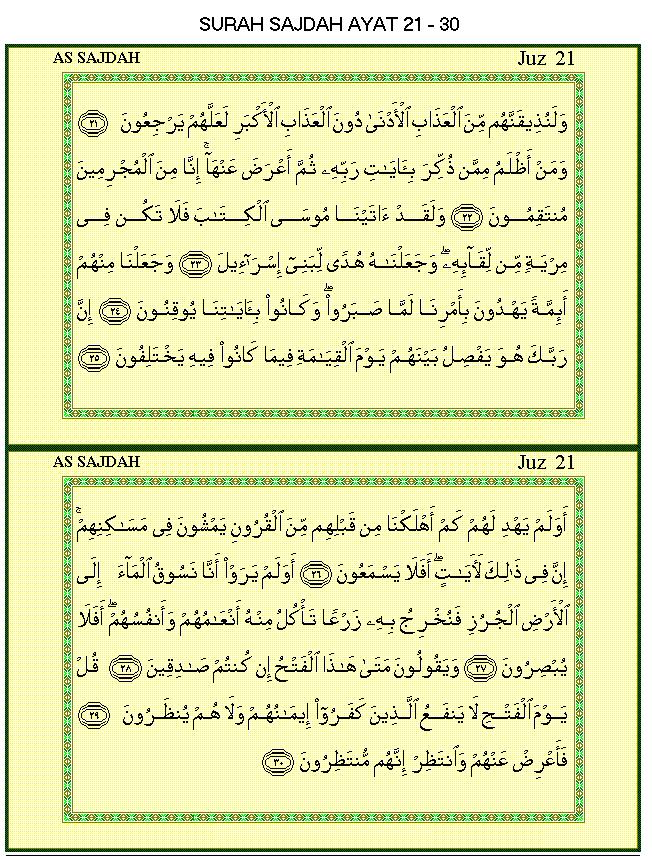 SURAH SAJDAH AYAT 21 - 30
AS SAJDAH Juz 21
وَلَنُذِيقَنَّهُم مِّنَ ٱلْعَذَابِ ٱلْأَدْنَىٰ دُونَ ٱلْعَذَابِ ٱلْأَكْبَرِ لَعَلَّهُمْ يَرْجِعُونَ ٢١
وَمَنْ أَظْلَمُ مِمَّن ذُكِّرَ بِـَٔايَـٰتِ رَبِّهِۦ ثُمَّ أَعْرَضَ عَنْهَآ ۚ إِنَّا مِنَ ٱلْمُجْرِمِينَ
مُنتَقِمُونَ ٢٢ وَلَقَدْ ءَاتَيْنَا مُوسَى ٱلْكِتَـٰبَ فَلَا تَكُن فِى
مِرْيَةٍ مِّن لِّقَآئِهِۦ ۖ وَجَعَلْنَـٰهُ هُدًى لِّبَنِىٓ إِسْرَٰٓءِيلَ ٢٣ وَجَعَلْنَا مِنْهُمْ
أَئِمَّةً يَهْدُونَ بِأَمْرِنَا لَمَّا صَبَرُوا۟ ۖ وَكَانُوا۟ بِـَٔايَـٰتِنَا يُوقِنُونَ ٢٤ إِنَّ
رَبَّكَ هُوَ يَفْصِلُ بَيْنَهُمْ يَوْمَ ٱلْقِيَـٰمَةِ فِيمَا كَانُوا۟ فِيهِ يَخْتَلِفُونَ ٢٥
AS SAJDAH Juz 21
أَوَلَمْ يَهْدِ لَهُمْ كَمْ أَهْلَكْنَا مِن قَبْلِهِم مِّنَ ٱلْقُرُونِ يَمْشُونَ فِى مَسَـٰكِنِهِمْ ۚ
إِنَّ فِى ذَٰلِكَ لَـَٔايَـٰتٍ ۖ أَفَلَا يَسْمَعُونَ ٢٦ أَوَلَمْ يَرَوْا۟ أَنَّا نَسُوقُ ٱلْمَآءَ إِلَى
ٱلْأَرْضِ ٱلْجُرُزِ فَنُخْرِجُ بِهِۦ زَرْعًا تَأْكُلُ مِنْهُ أَنْعَـٰمُهُمْ وَأَنفُسُهُمْ ۖ أَفَلَا
يُبْصِرُونَ ٢٧ وَيَقُولُونَ مَتَىٰ هَـٰذَا ٱلْفَتْحُ إِن كُنتُمْ صَـٰدِقِينَ ٢٨ قُلْ
يَوْمَ ٱلْفَتْحِ لَا يَنفَعُ ٱلَّذِينَ كَفَرُوٓا۟ إِيمَـٰنُهُمْ وَلَا هُمْ يُنظَرُونَ ٢٩
فَأَعْرِضْ عَنْهُمْ وَٱنتَظِرْ إِنَّهُم مُّنتَظِرُونَ ٣٠